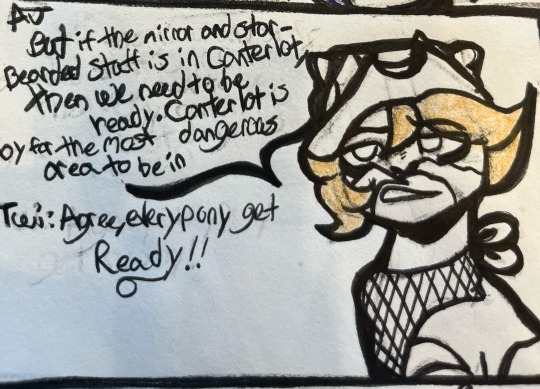 AJ
But if the mirror and star-
Bearded staff is in Canterlot,
then we need to be
ready. Canterlot is
by for the most dangerous
area to be in
Twi: Agree, everypony get
Ready!!